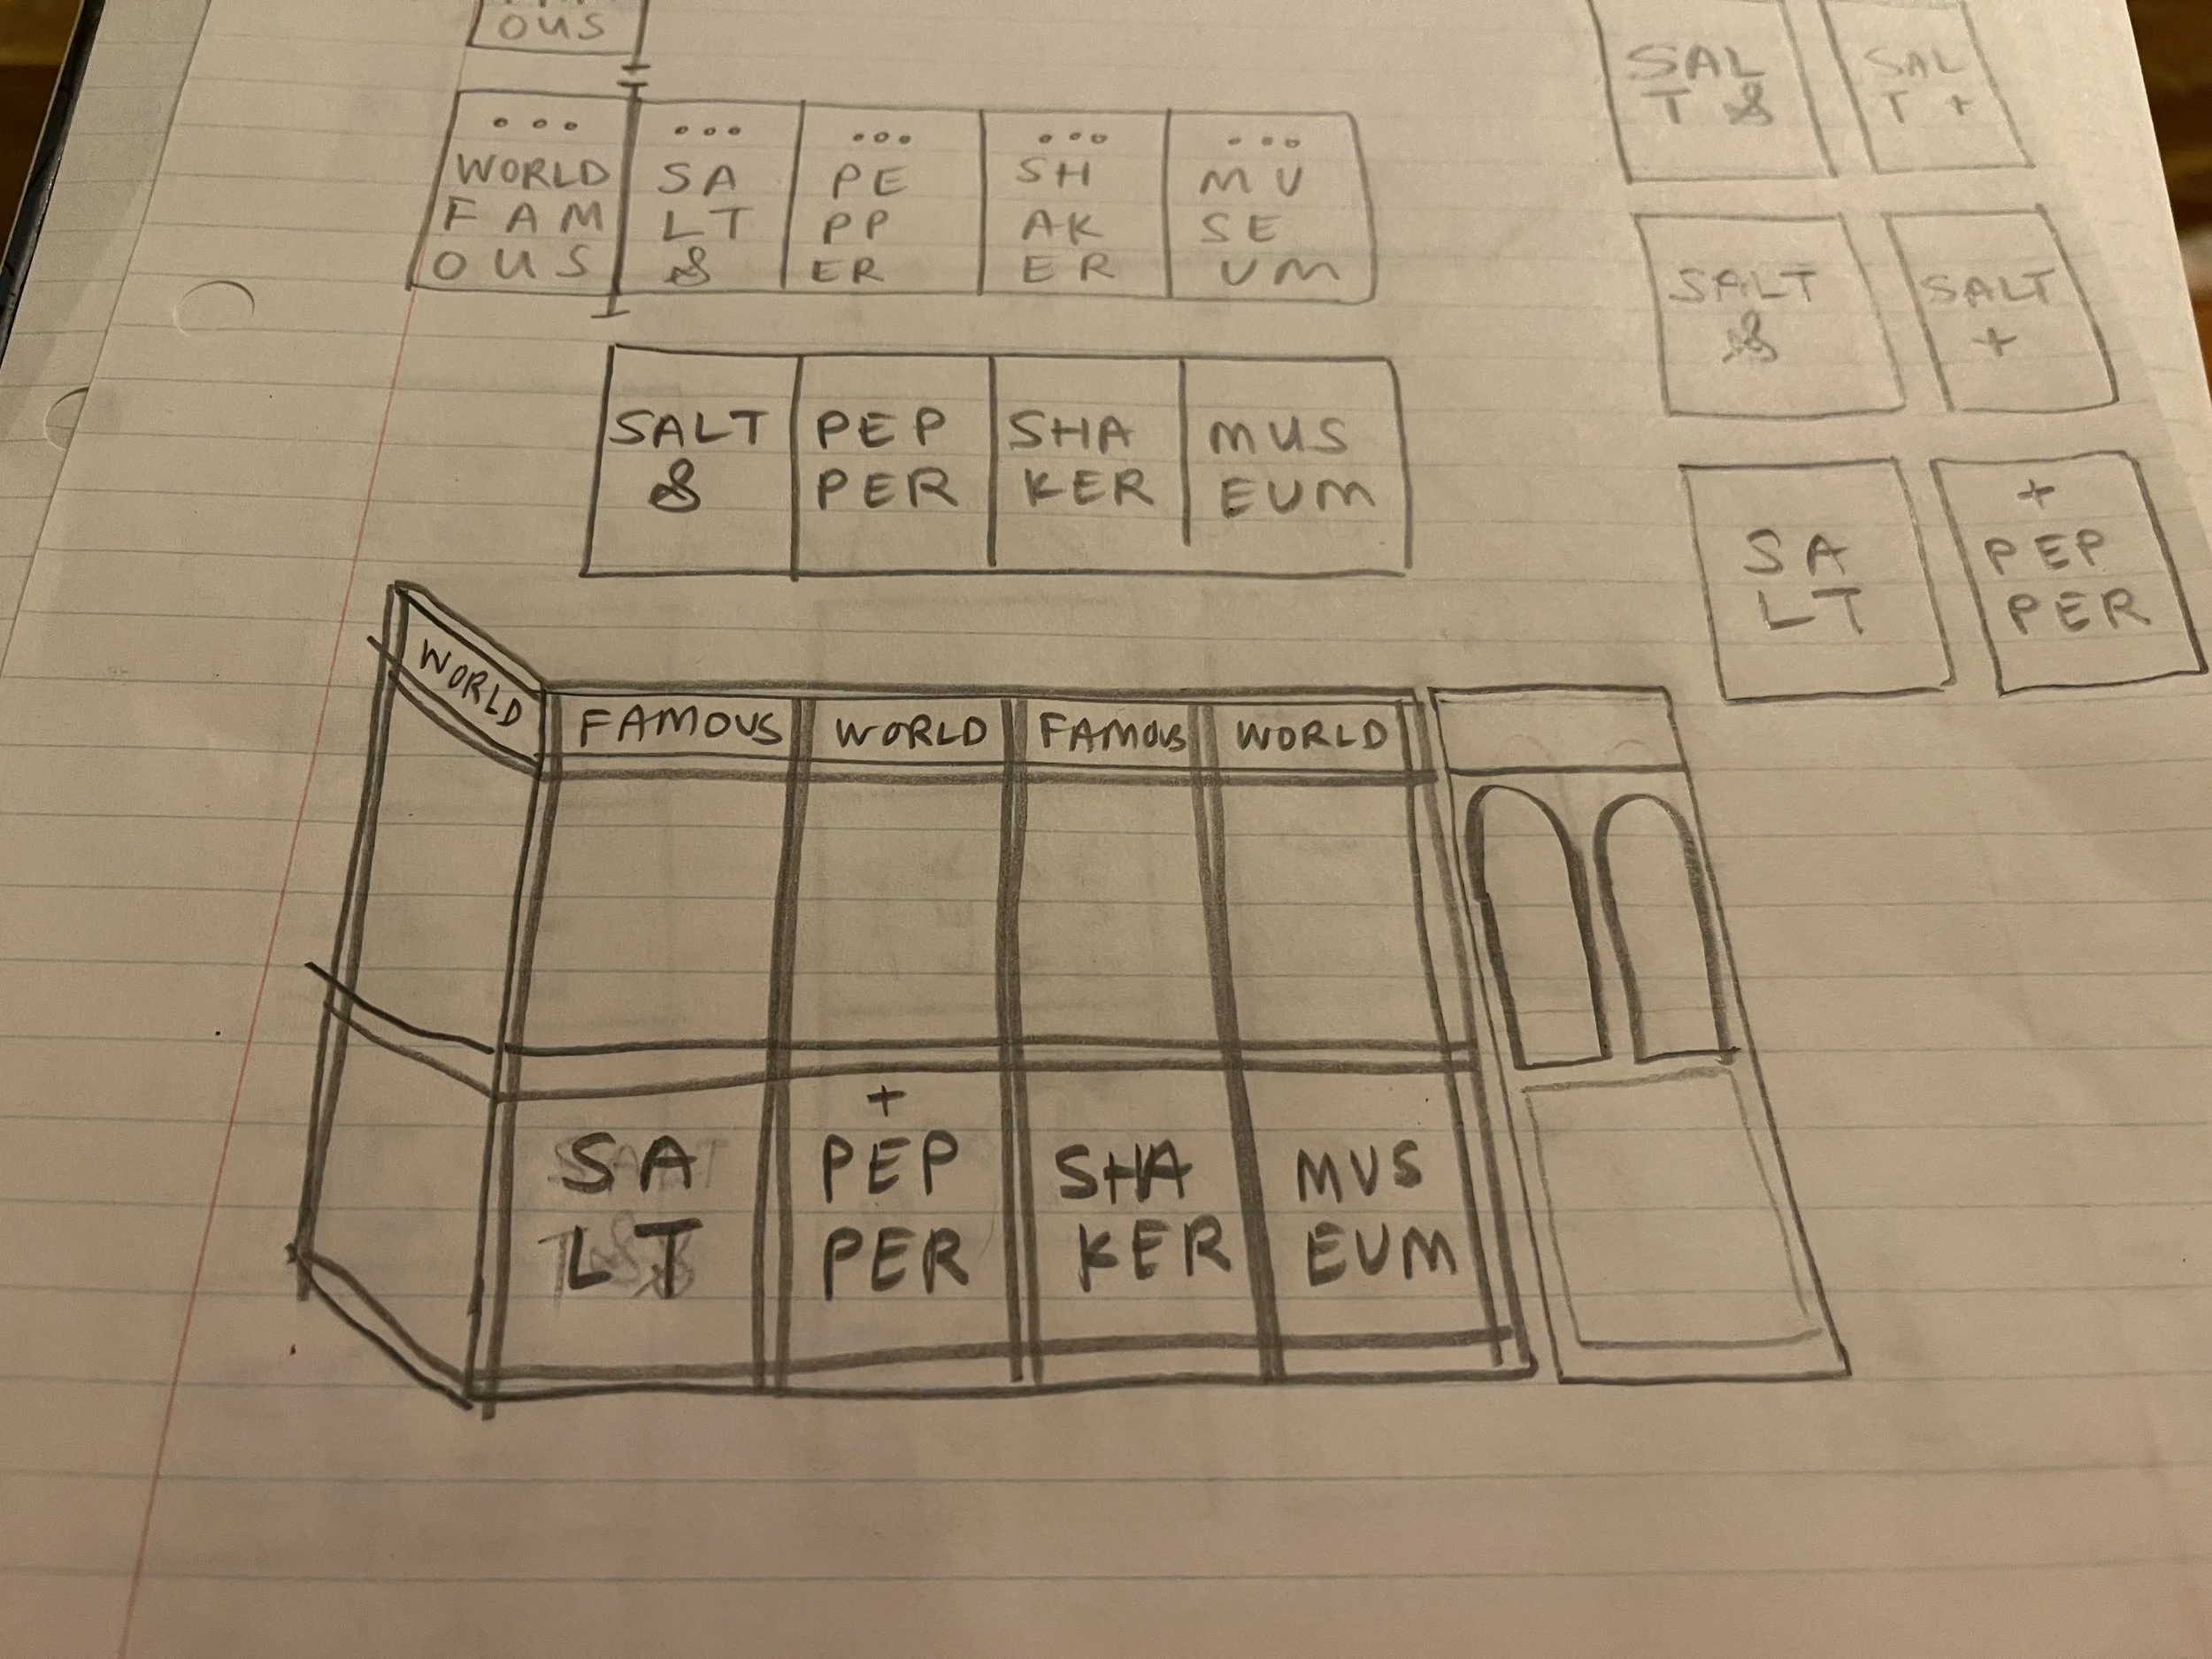 OUS
WORLD
FAM
OUS
SA
LT
&
PE
PP
ER
SH
AK
ER
MU
SE
UM
SALT
&
PEP
PER
SHA
KER
MUS
EUM
SAL
T &
SAL
T +
SALT
&
SALT
+
SA
LT
+
PEP
PER
WORLD
FAMOUS
WORLD
FAMOUS
WORLD
SA
LT
+
PEP
PER
SHA
KER
MUS
EUM